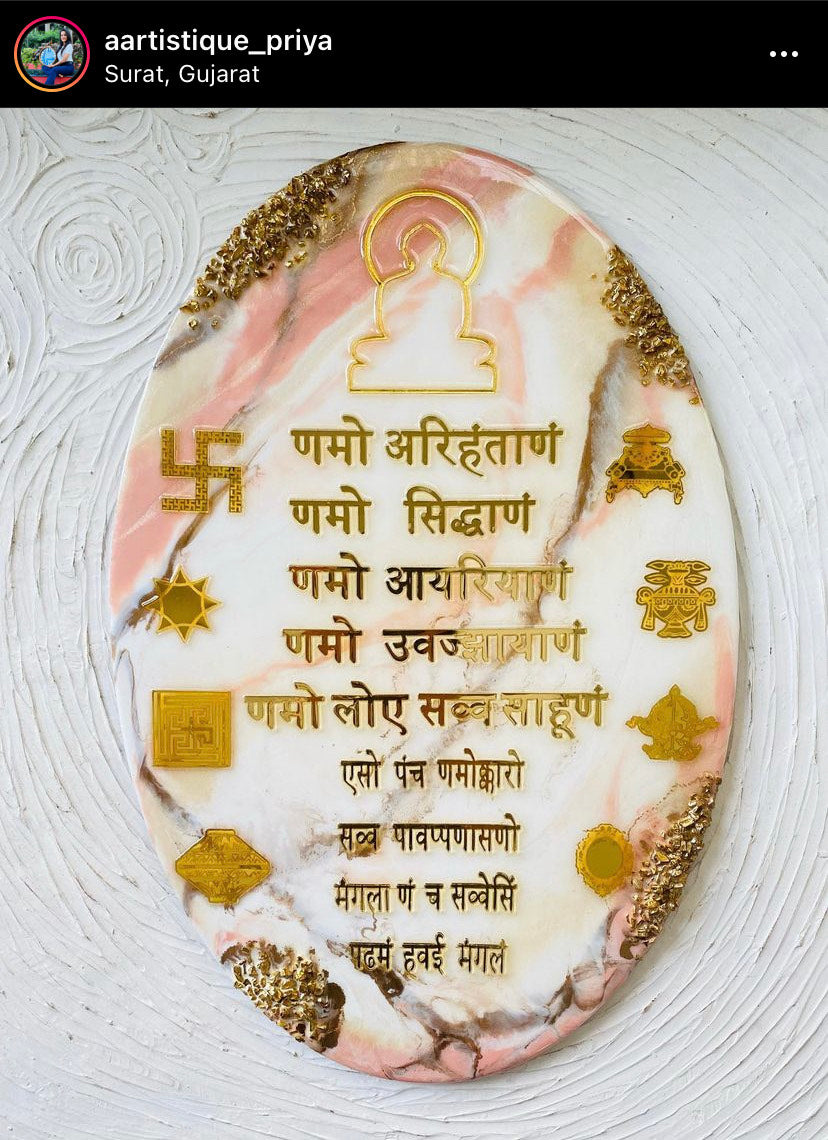 aartistique_priya
Surat, Gujarat
णमो अरिहंताणं
णमो सिद्धाणं
णमो आयरियाणं
णमो उवज्झायाणं
णमो लोए सव्व साहूणं
एसो पंच णमोक्कारो
सव्व पावप्पणासणो
मंगला णं च सव्वेसिं
पढमं हवई मंगलं